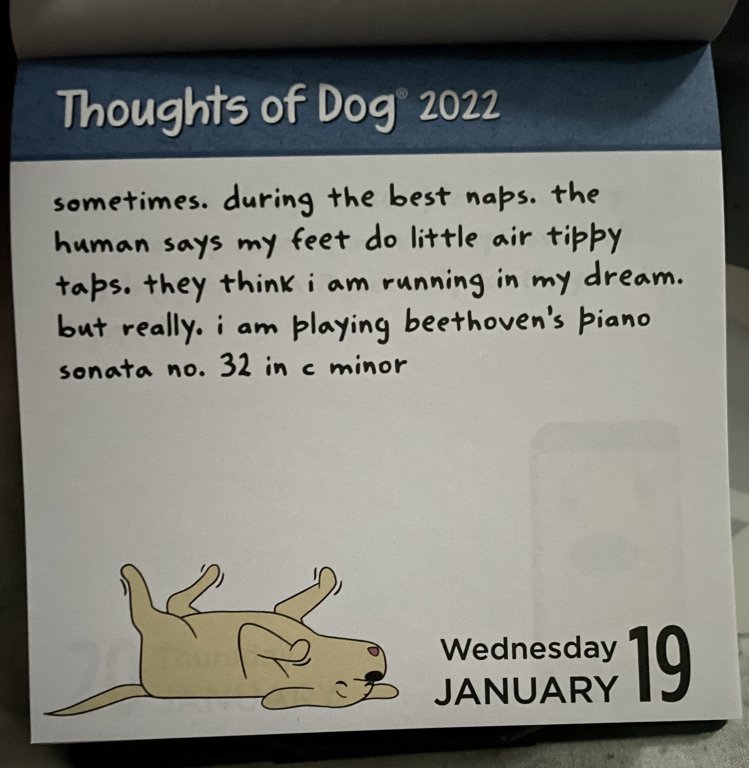 Thoughts of Dog® 2022
sometimes. during the best naps. the
human says my feet do little air tippy
taps. they think i am running in my dream.
but really. i am playing beethoven's piano
sonata no. 32 in c minor
Wednesday
JANUARY 19